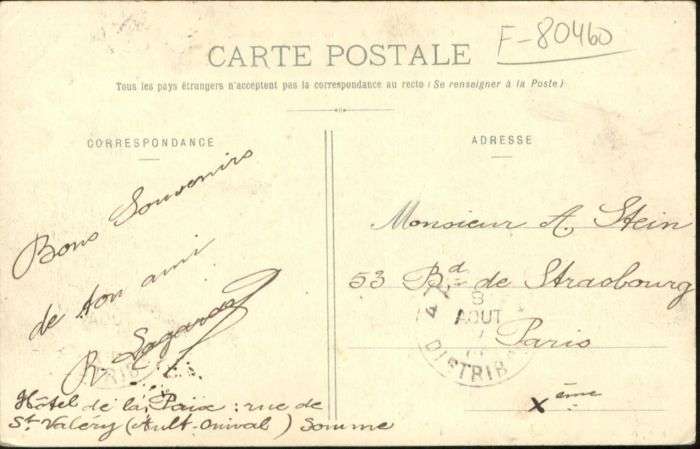 F-80460
CARTE POSTALE
Tous les pays étrangers n'acceptent pas la correspondance au recto (Se renseigner à la Poste)
CORRESPONDANCE
Bons Souvenirs
de ton ami
Hôtel de la Paix : rue de
St Valery (Ault-Onival) Somme
ADRESSE
Monsieur A. Stein
53 Bd de Strasbourg
Paris
Xème
8
AOUT
DISTRIB